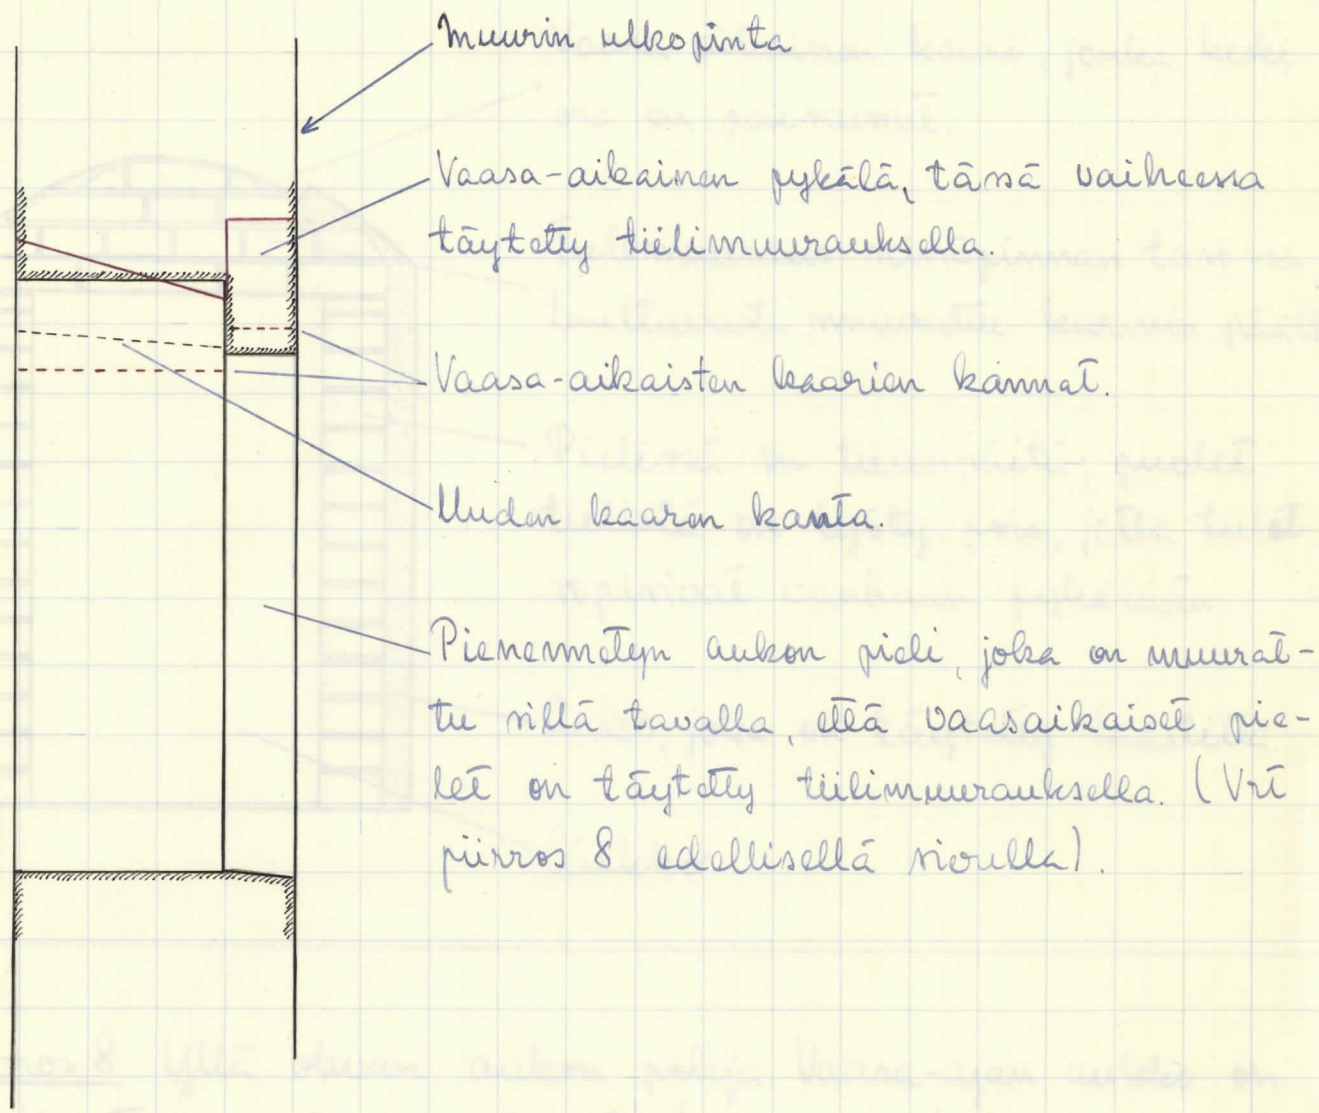 Muurin ulkopinta
Vaasa-aikainen pykälä, tässä vaiheessa
täytetty tiilimuurauksella.
Vaasa-aikaisten kaarien kannat.
Uuden kaaren kanta.
Pienennetyn aukon pieli, joka on muurat-
tu sillä tavalla, että vaasaikaiset pie-
let on täytetty tiilimuurauksella. (Vrt
piirros 8 edellisellä sivulla).